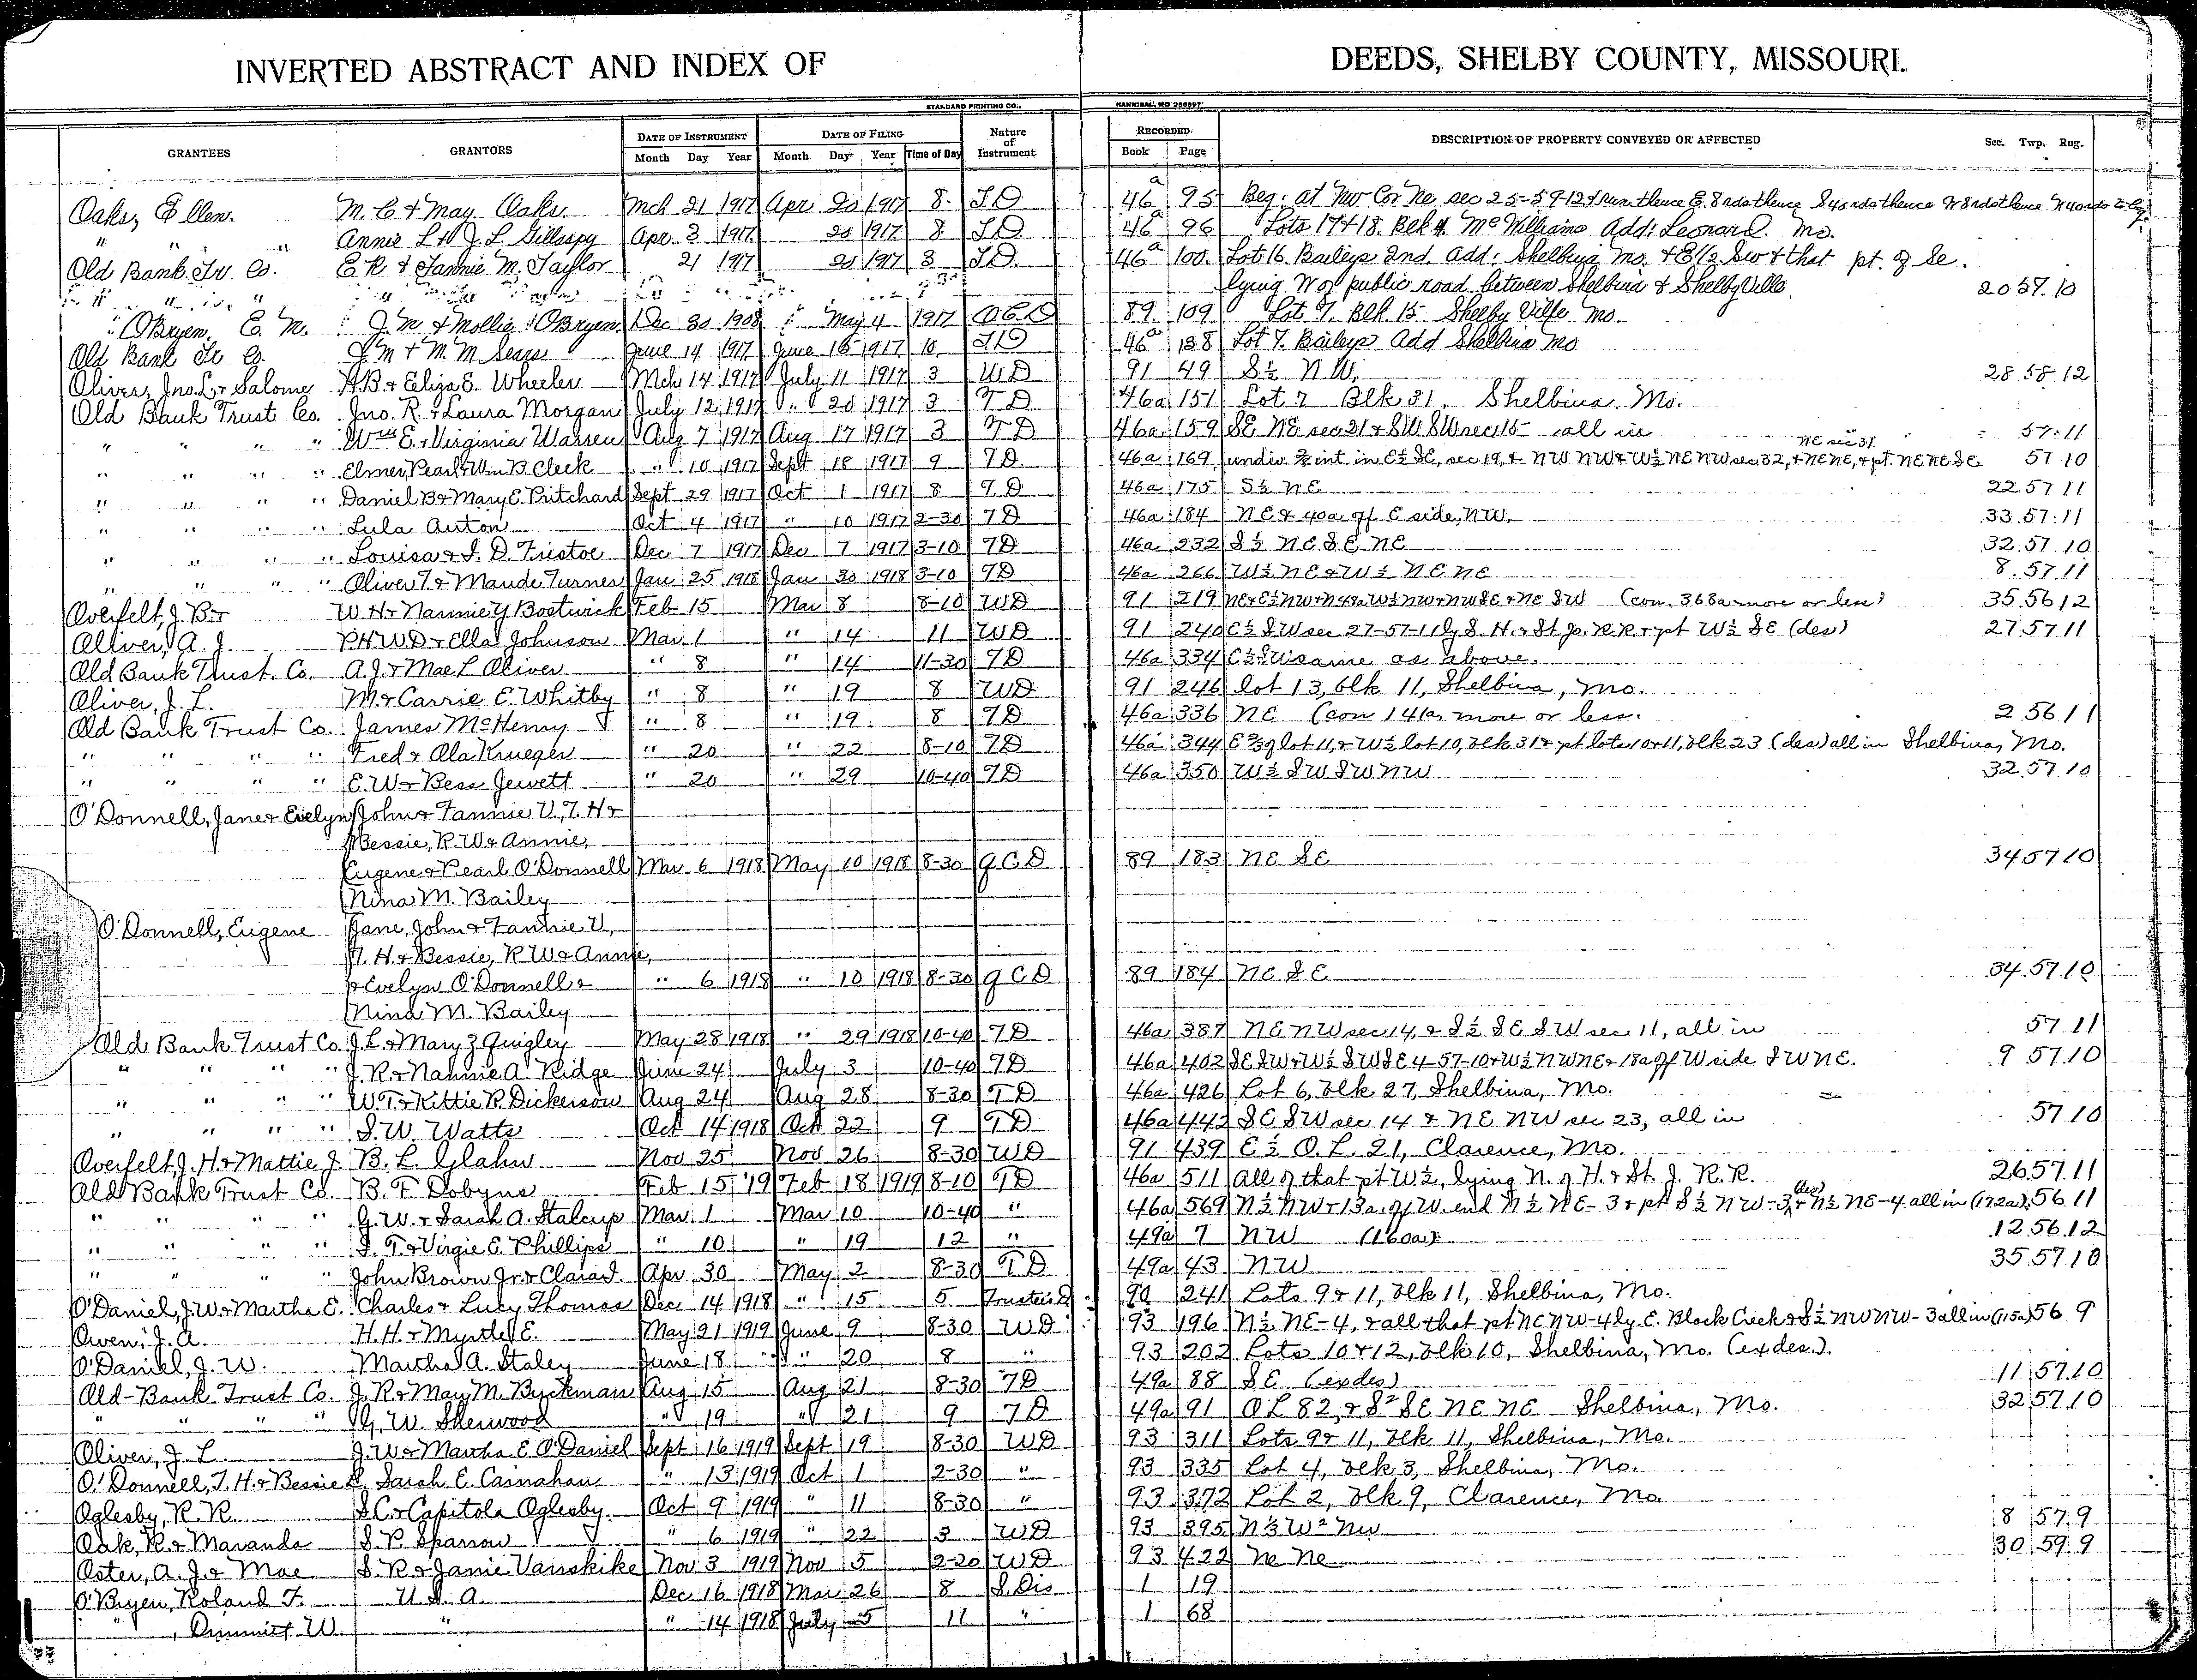 INVERTED ABSTRACT AND INDEX OF DEEDS, SHELBY COUNTY, MISSOURI.
STANDARD PRINTING CO., HANNIBAL, MO
GRANTEES GRANTORS DATE OF INSTRUMENT DATE OF FILING Nature of Instrument RECORDED DESCRIPTION OF PROPERTY CONVEYED OR AFFECTED Sec. Twp. Rng.
Month Day Year Month Day Year Time of Day Book Page
Oaks, Ellen. M. C. & May Oaks. Mch 21 1917 Apr 20 1917 8 T D 46a 95 Beg. at NW Cor Ne sec 25-59-12 & run thence E. 8 rds thence S 40 rds thence W 8 rds thence N 40 rds to Beg.
" " " Annie L & J. L. Gillaspy Apr. 3 1917 20 1917 8 T D 46a 96 Lots 17 & 18 Blk 4 McWilliams Add: Leonard. Mo.
Old Bank Tr Co. E. R. & Fannie M. Taylor 21 1917 21 1917 3 T D 46a 100 Lot 16 Baileys 2nd Add: Shelbyna Mo. & E 1/2 Sw & that pt. of Se.
lying W of public road between Shelbina & Shelby Ville 20 57.10
OBryen, E. M. J. M & Mollie OBryen Dec 30 1908 May 4 1917 Q C D 89 109 Lot 7, Blk 15 Shelby Ville Mo.
Old Bank Tr Co. J. M & M. M Sears June 14 1917 June 16 1917 10 T D 46a 138 Lot 7. Baileys Add Shelbina Mo
Oliver, Jno. L. & Salome H. B & Eliza E. Wheeler Mch 14 1917 July 11 1917 3 WD 91 49 S½ N.W. 28 58 12
Old Bank Trust Co. Jno. R. & Laura Morgan July 12 1917 " 20 1917 3 T D 46a 151 Lot 7 Blk 31. Shelbina. Mo.
" " " " Wm E. & Virginia Warren Aug 7 1917 Aug 17 1917 3 T D 46a 159 SE NE sec 21 & SW SW sec 15 all in 57.11
" " " " Elmer, Pearl & Wm B. Cleek " 10 1917 Sept 18 1917 9 T D 46a 169 undiv ⅔ int. in E½ SE, sec 19, & NW NW & W½ NE NW sec 32, & NE NE, & pt. NE NE SE NE sec 31. 57 10
" " " " Daniel B & Mary E. Pritchard Sept 29 1917 Oct 1 1917 8 T D 46a 175 S½ NE 22 57 11
" " " " Lula Anton Oct 4 1917 " 10 1917 2-30 T D 46a 184 NE & 40a off E side, NW. 33.57.11
" " " " Louisa & J. D. Fristoe Dec 7 1917 Dec 7 1917 3-10 T D 46a 232 S½ NE SE NE 32.57 10
" " " " Oliver T. & Maude Turner Jan 25 1918 Jan 30 1918 3-10 T D 46a 266 W½ NE & W½ NE NE 8.57 11
Overfelt, J. B. & W. H. & Nannie Y Bostwick Feb 15 Mar 8 8-10 WD 91 219 NE & E½ NW & N 48a W½ NW & NW SE & NE SW (con. 368a more or less) 35.56 12
Oliver, A. J. P. H. W D & Ella Johnson Mar 1 " 14 11 WD 91 240 E½ SW sec 27-57-11 ly S. H. & St. Jo. R. R. & pt W½ SE (des) 27 57 11
Old Bank Trust. Co. A. J. & Mae L. Oliver " 8 " 14 11-30 T D 46a 334 E½ SW same as above.
Oliver, J. L. M. & Carrie E. Whitby " 8 " 19 8 WD 91 246 lot 13, blk 11, Shelbina, Mo.
Old Bank Trust Co. James McHenry " 8 " 19 8 T D 46a 336 NE (con 141a. more or less. 2 56 11
" " " " Fred & Ola Krueger " 20 " 22 8-10 T D 46a 344 E⅔ of lot 11, & W½ lot 10, blk 31 & pt lots 10 & 11, blk 23 (des) all in Shelbina, Mo.
" " " " E. W & Bess Jewett " 20 " 29 10-40 T D 46a 350 W½ SW SW NW 32.57.10
O'Donnell, Jane & Evelyn John & Fannie V., T. H &
Bessie, R. W & Annie,
Eugene & Pearl O'Donnell Mar 6 1918 May 10 1918 8-30 Q C D 89 183 NE SE 34 57.10
Nina M. Bailey
O'Donnell, Eugene Jane, John & Fannie V,
T. H. & Bessie, R W & Annie,
& Evelyn O'Donnell & " 6 1918 " 10 1918 8-30 Q C D 89 184 NE SE 34.57.10
Nina M. Bailey
Old Bank Trust Co J. L. & Mary Z Quigley May 28 1918 " 29 1918 10-40 T D 46a 387 NE NW sec 14, & S½ SE SW sec 11, all in 57 11
" " " " J. R & Nannie A. Ridge June 24 July 3 10-40 T D 46a 402 SE SW & W½ SW SE 4-57-10 & W½ NW NE & 18a off W side SW NE. 9 57.10
" " " " W. T. & Kittie R. Dickerson Aug 24 Aug 28 8-30 T D 46a 426 Lot 6, blk 27, Shelbina, Mo.
" " " " S. W. Watts Oct 14 1918 Oct 22 9 T D 46a 442 SE SW sec 14 & NE NW sec 23, all in 57 10
Overfelt, J. H. & Mattie J. B. L. Glahn Nov 25 Nov 26 8-30 WD 91 439 E½ O. L. 21, Clarence, Mo.
Old Bank Trust Co. B. F Dobyns Feb 15 '19 Feb 18 1919 8-10 T D 46a 511 all of that pt W½, lying N. of H. & St. J. R. R. 26 57.11
" " " " G. W. & Sarah A. Stalcup Mar 1 Mar 10 10-40 " 46a 569 N½ NW & 13a. of W. end N½ NE-3 & pt S½ NW-3, (des) & N½ NE-4 all in (172a), 56 11
" " " " J. T. & Virgie E. Phillips " 10 " 19 12 " 49a 7 NW (160a). 12.56.12
" " " " John Brown Jr. & Clara L. Apr 30 May 2 8-30 T D 49a 43 NW 35 57 10
O'Daniel, J. W. & Martha E. Charles & Lucy Thomas Dec 14 1918 " 15 5 Trustee's D 90 241 Lots 9 & 11, blk 11, Shelbina, Mo.
Owen, J. A. H. H. & Myrtle E. May 21 1919 June 9 8-30 WD 93 196 N½ NE-4, & all that pt NE NW-4 ly. E. Black Creek & S½ NW NW-3 all in (115a) 56 9
O'Daniel, J. W. Martha A. Staley June 18 " 20 8 " 93 202 Lots 10 & 12, blk 10, Shelbina, Mo. (ex des.).
Old Bank Trust Co. J. R & May M. Buckman Aug 15 Aug 21 8-30 T D 49a 88 SE (ex des) 11 57.10
" " " " G. W. Sherwood " 19 " 21 9 T D 49a 91 OL 82, & S² SE NE NE Shelbina, Mo. 32 57.10
Oliver, J. L. J. W & Martha E O'Daniel Sept 16 1919 Sept 19 8-30 WD 93 311 Lots 9 & 11, blk 11, Shelbina, Mo.
O'Donnell, T. H. & Bessie R. Sarah E. Carnahan " 13 1919 Oct 1 2-30 " 93 335 Lot 4, blk 3, Shelbina, Mo.
Oglesby, R. R. S. C. & Capitola Oglesby Oct 9 1919 " 11 8-30 " 93 372 Lot 2, blk 9, Clarence, Mo
Oak, R. & Maranda S. P. Sparrow " 6 1919 " 22 3 WD 93 395 N⅓ W² NW 8 57.9
Oster, A. J & Mae S. R & Janie Vanskike Nov 3 1919 Nov 5 2-20 WD 93 422 Ne Ne 30 59.9
O'Bryen, Roland F. U. S. A. Dec 16 1918 Mar 26 8 S. Dis. 1 19
" , W. " " 14 1918 July 5 11 " 1 68